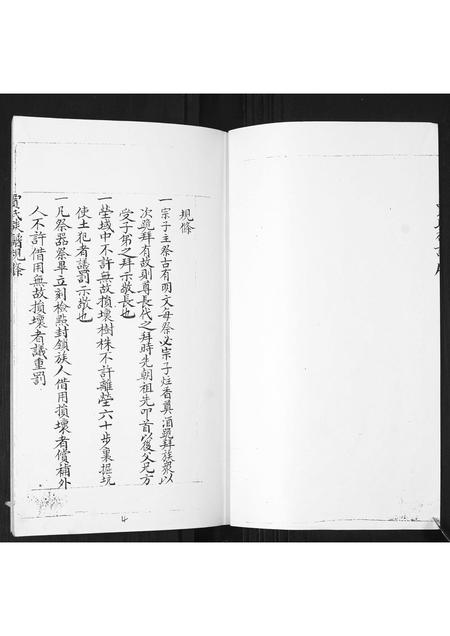 規條
一宗子主祭古有明文每祭必宗子炷香奠酒跪拜族衆以
次跪拜有故則尊長代之拜時先朝祖先叩首以後父兄方
受子弟之拜示敬長也
一塋域中不許無故損壞樹株不許離塋六十步裏掘坑
使土犯者議罰示敬也
一凡祭器祭畢立刻檢點封鎖族人借用損壞者償補外
人不許借用無故損壞者議重罰
賈氏族譜規條
4